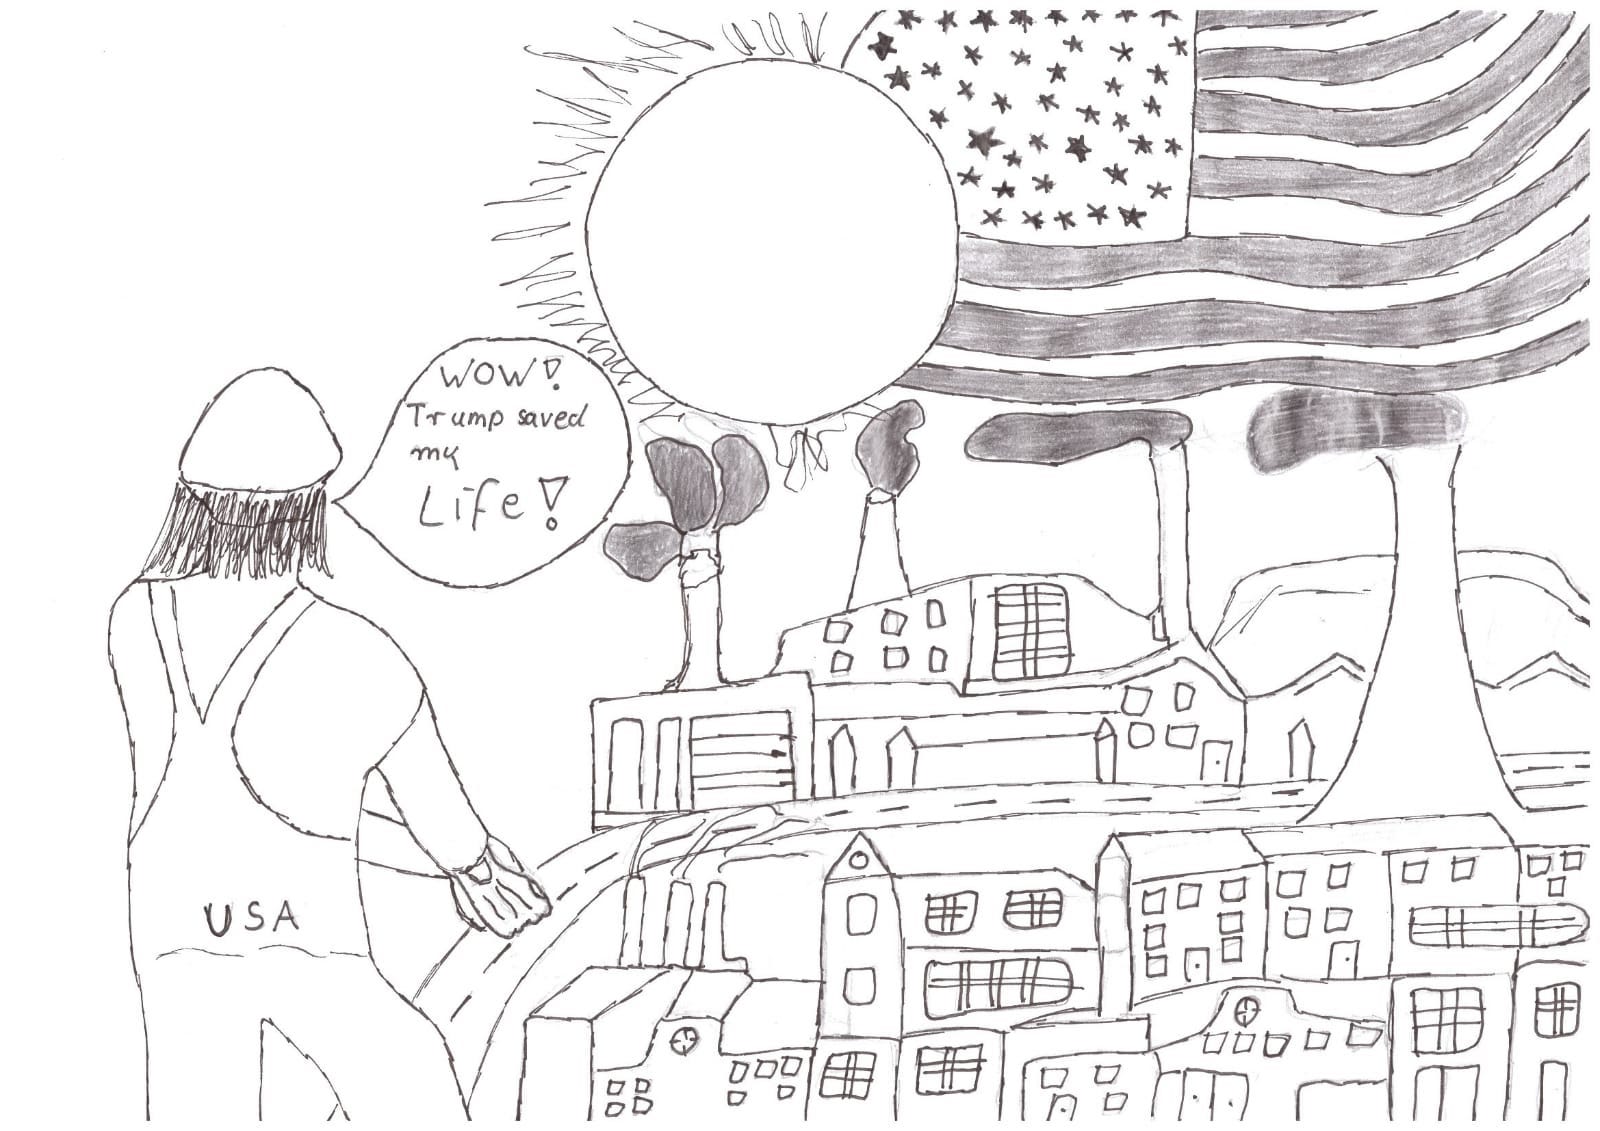 WOW!
Trump saved
my
Life!
USA